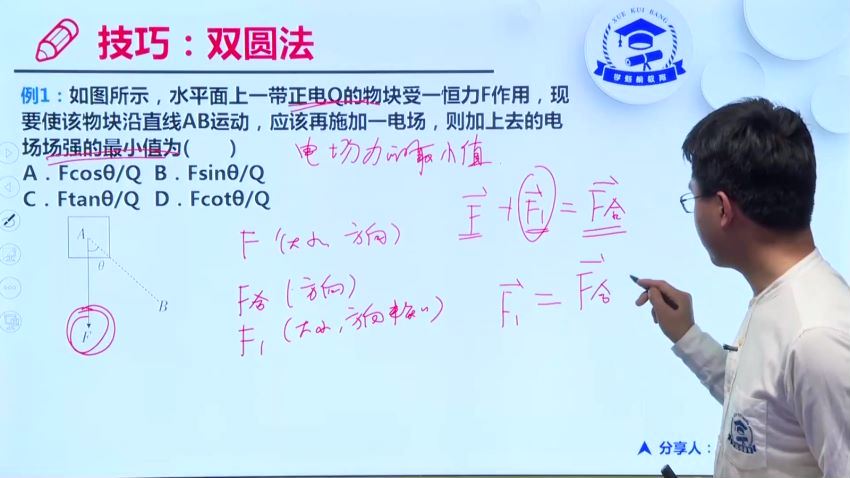 技巧：双圆法
XUE KUI BANG
学魁榜教育
例1：如图所示，水平面上一带正电Q的物块受一恒力F作用，现
要使该物块沿直线AB运动，应该再施加一电场，则加上去的电
场场强的最小值为(　　)
电场力的最小值
A．Fcosθ/Q B．Fsinθ/Q
C．Ftanθ/Q D．Fcotθ/Q
F + F₁ = F合
A
θ
B
F
F（大小，方向）
F合（方向）
F₁（大小，方向
F₁ = F合
分享人：
XUE KUI BANG